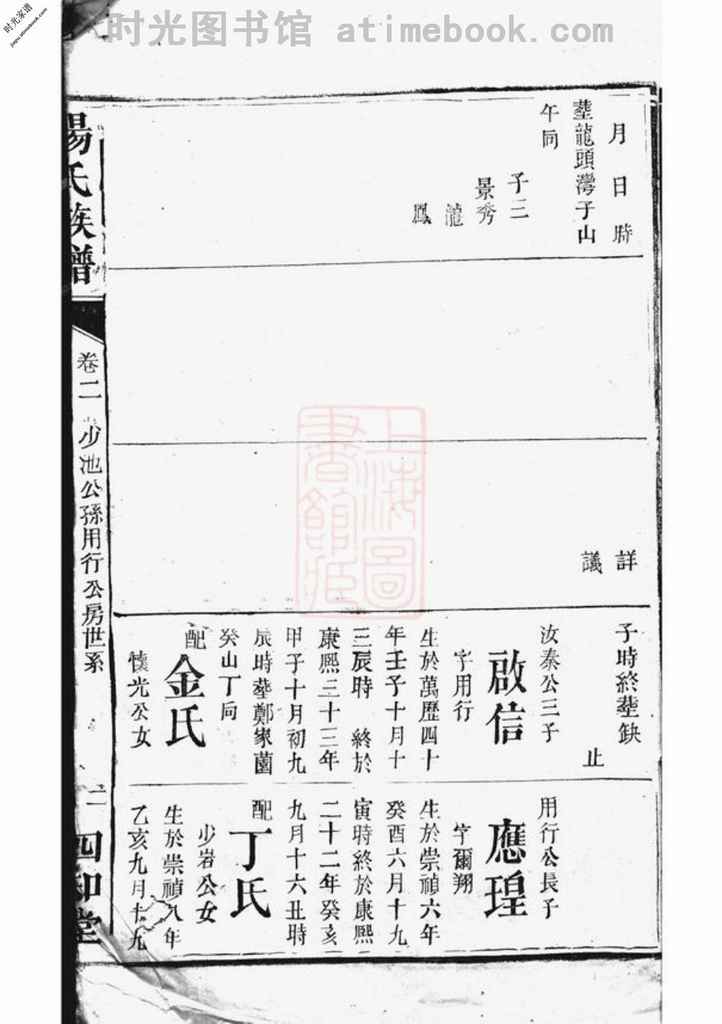 时光图书馆 atimebook.com
时光家谱
jiapu.atimebook.com
月日時
塟龍頭灣子山
午向
子三
景秀
龍
鳳
詳
議
子時終塟缺
止
汝秦公三子
啟信
字用行
生於萬歷四十
年壬子十月十
三辰時 終於
康熙三十三年
甲子十月初九
辰時塟鄭家菌
癸山丁向
配
金氏
懷光公女
用行公長子
應瑝
字爾翔
生於崇禎六年
癸酉六月十九
寅時終於康熙
二十二年癸亥
九月十六丑時
配
丁氏
少岩公女
生於崇禎八年
乙亥九月十九
楊氏族譜
卷二
少池公孫用行公房世系
四知堂
上海圖
書館藏